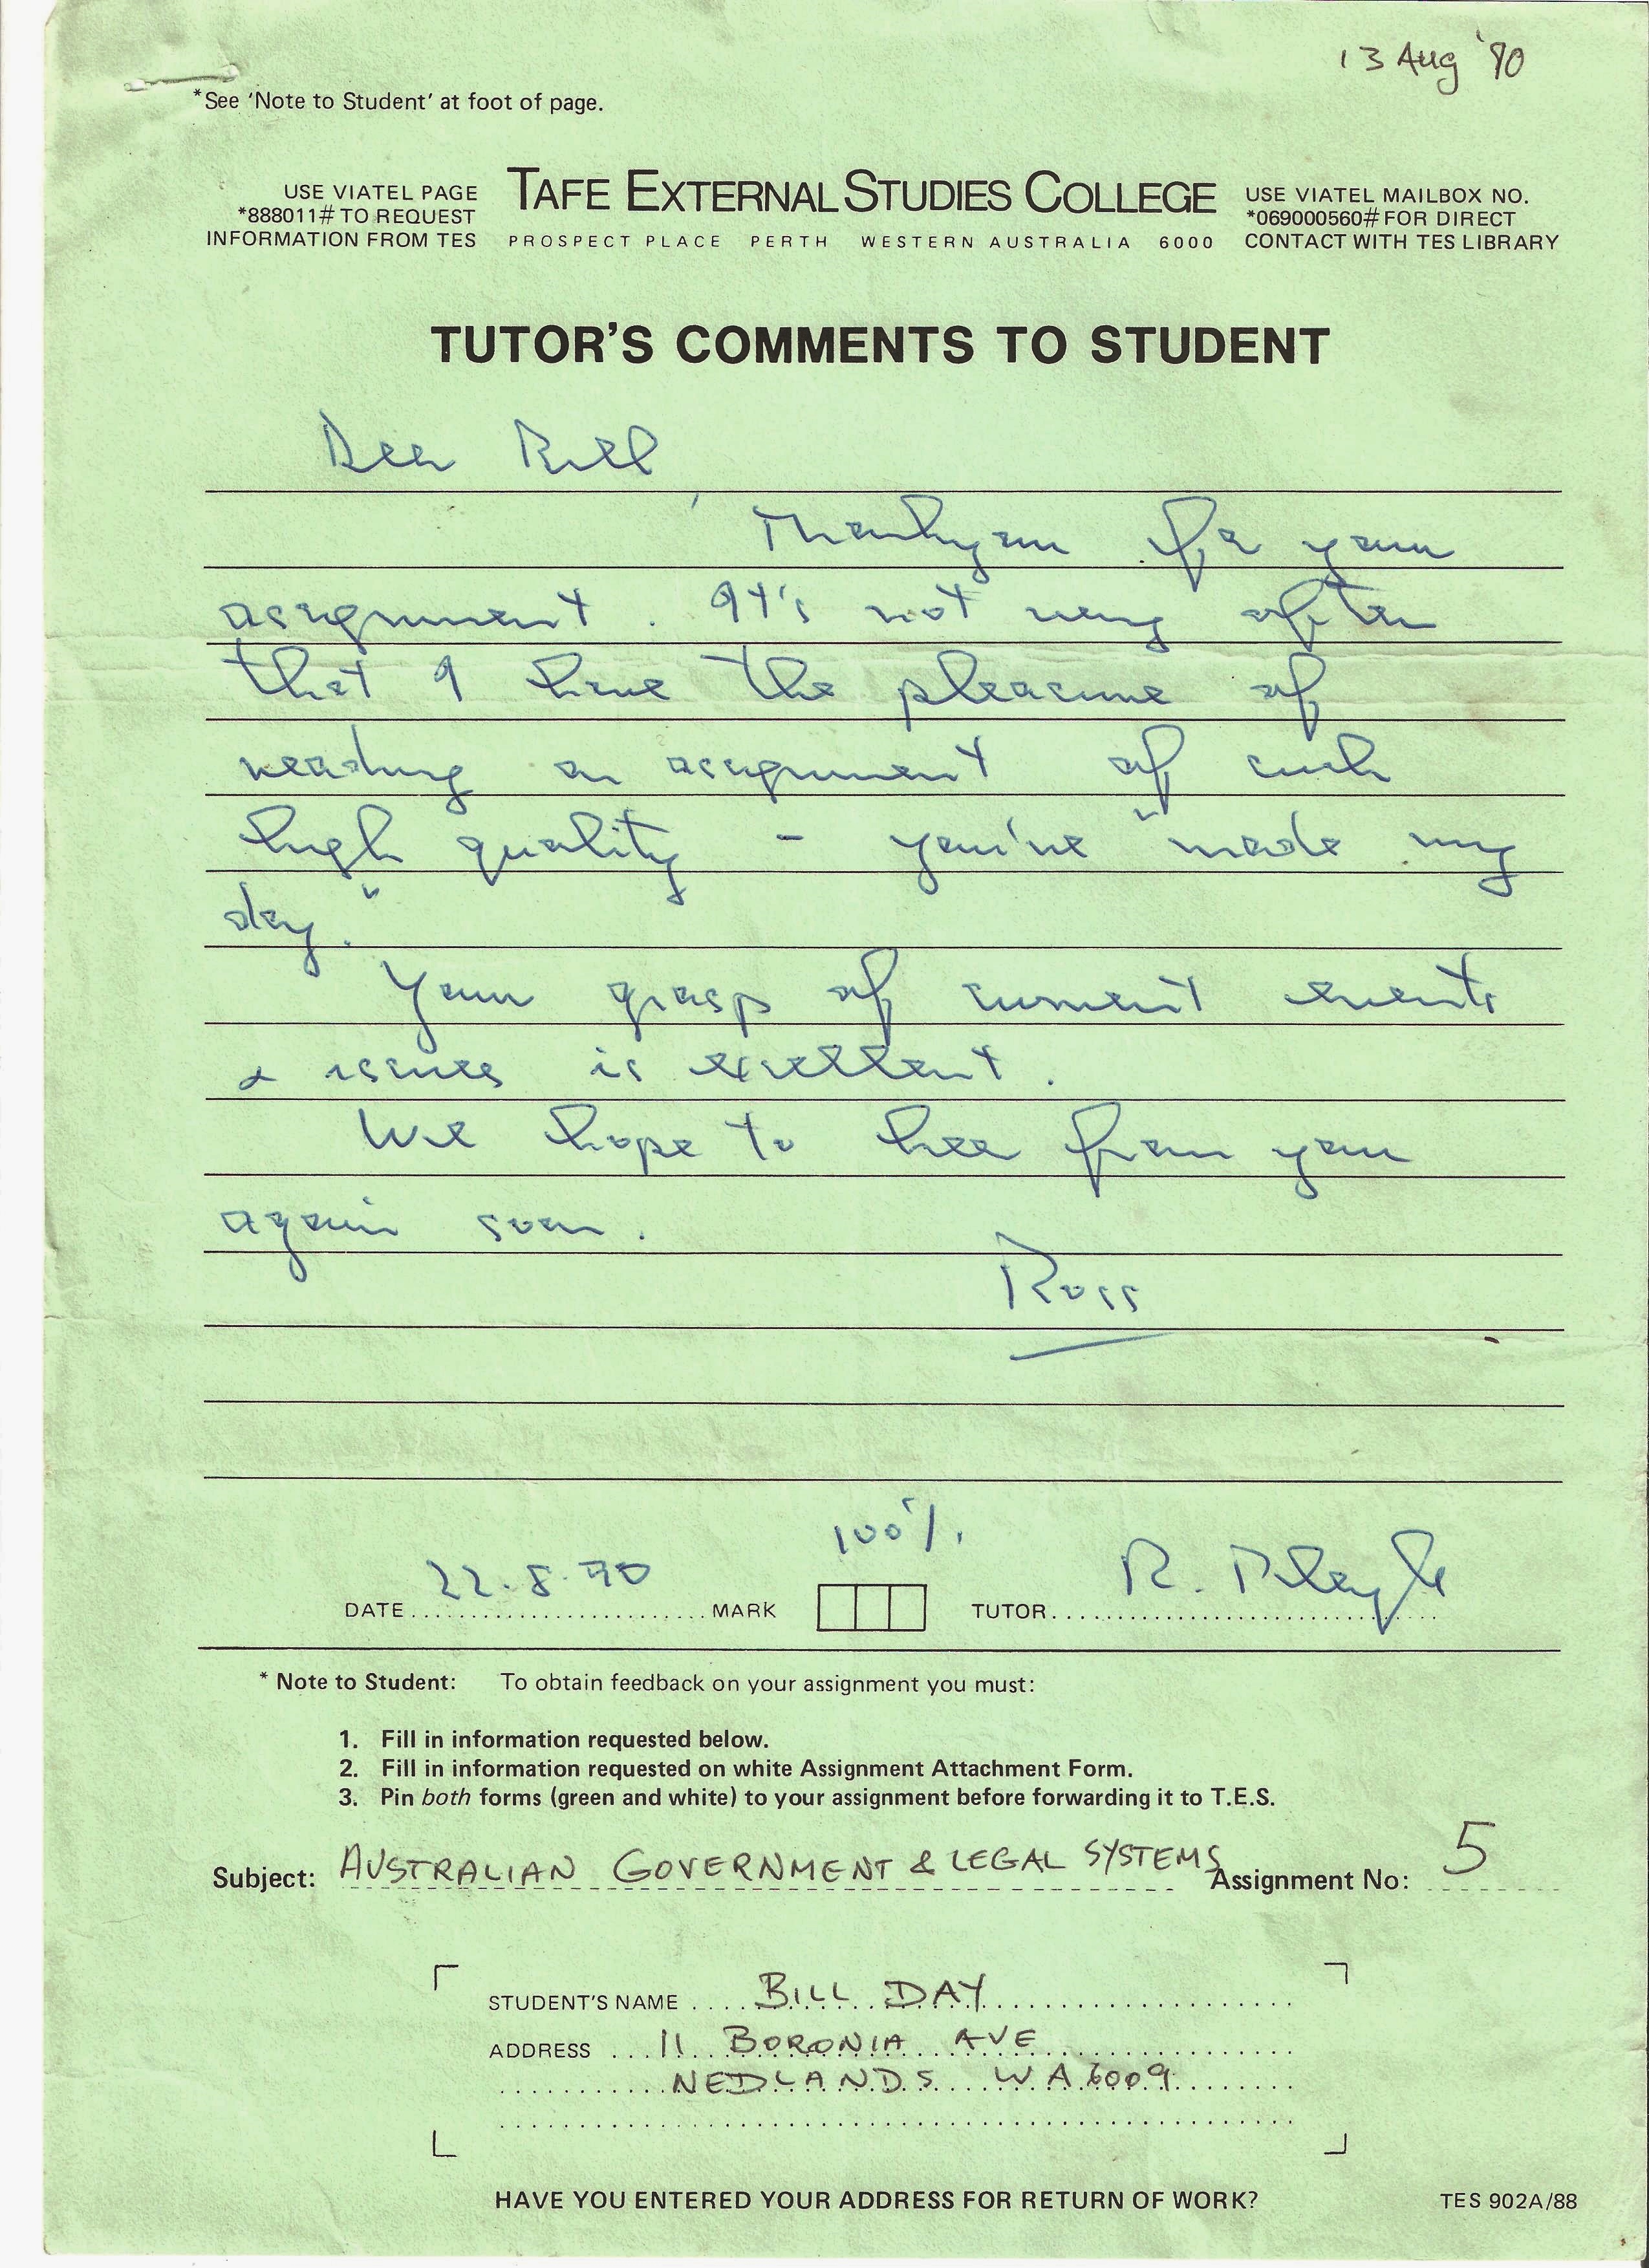 13 Aug '90
*See 'Note to Student' at foot of page.
USE VIATEL PAGE
*888011# TO REQUEST
INFORMATION FROM TES
TAFE EXTERNAL STUDIES COLLEGE
PROSPECT PLACE PERTH WESTERN AUSTRALIA 6000
USE VIATEL MAILBOX NO.
*069000560# FOR DIRECT
CONTACT WITH TES LIBRARY
TUTOR'S COMMENTS TO STUDENT
Dear Bill,
Thankyou for your
assignment. It's not very often
that I have the pleasure of
reading an assignment of such
high quality - you've "made my
day."
Your grasp of current events
& issues is excellent.
We hope to hear from you
again soon.
Ross
DATE 22.8.90 MARK 100% TUTOR R.
* Note to Student: To obtain feedback on your assignment you must:
1. Fill in information requested below.
2. Fill in information requested on white Assignment Attachment Form.
3. Pin both forms (green and white) to your assignment before forwarding it to T.E.S.
Subject: AUSTRALIAN GOVERNMENT & LEGAL SYSTEMS Assignment No: 5
STUDENT'S NAME BILL DAY
ADDRESS 11 BORONIA AVE
NEDLANDS WA 6009
HAVE YOU ENTERED YOUR ADDRESS FOR RETURN OF WORK?
TES 902A/88